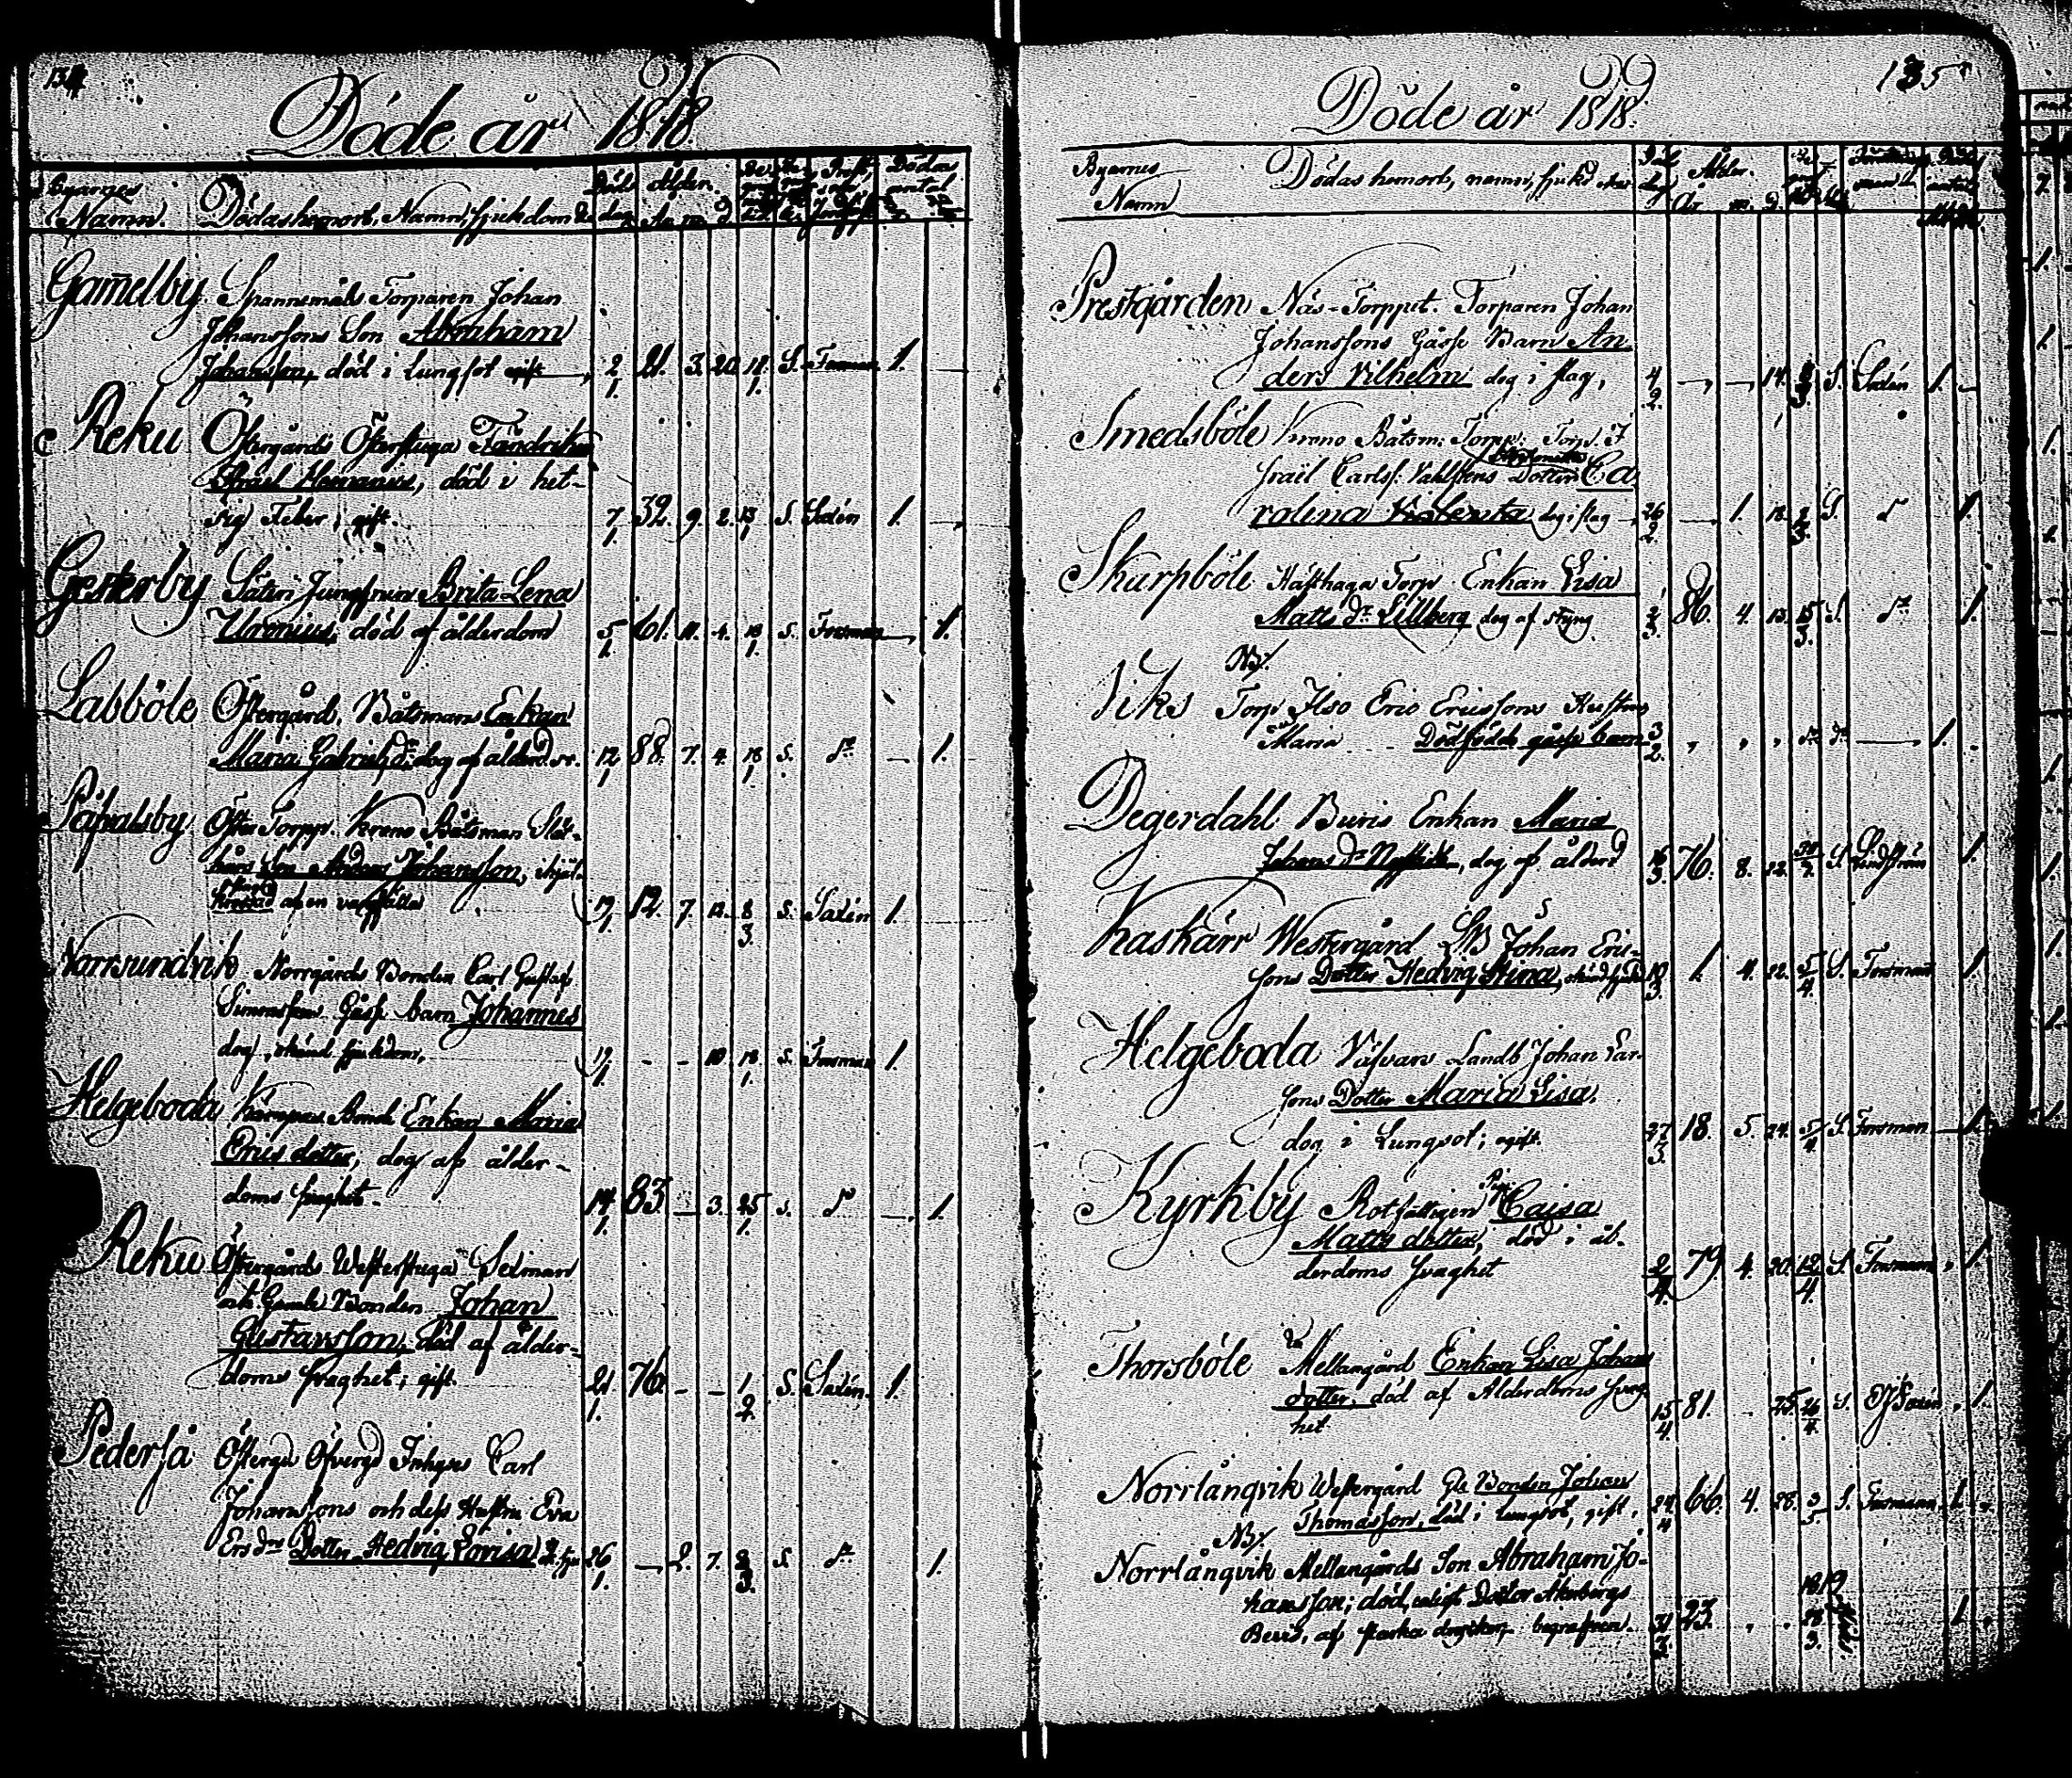 134
Döde år 1818
Byarnes Namn. Dödas hemort, Namn, sjukdom &c Döds dag Ålder. År m. d.
Gamelby Spannemåls Torparen Johan
Johanssons Son Abraham
Johansson, död i Lungsot 2/1 21. 3. 20. 18/1. S. Forsman 1.
Reku Östergårds Österstuga Fändriken
Israel Herranius, död i het-
sig Feber, gift. 7/1 32. 9. 2. 13/1 S. Saxén 1.
Gesterby Säteri Jungfrun Brita Lena
död af ålderdom 5/1 61. 11. 4. 18/1. S. Forsman 1.
Labböle Östergård, Båtsmans Enkan
Maria Gabrielsdr: dog af ålderd. 12/1 88. 7. 4. 18/1 S. do 1.
Påfvalsby Öster Torpp. Krono Båtsman
Son Anders Johansson,
af en 19/1 12. 7. 12. 8/3. S. Saxén 1.
Norrsundvik Norrgårds Bonden Carl Gustaf
Simonssons Gåsse barn Johannes
dog, okänd sjukdom, 17/1. - - 10. 18/1. S. Forsman 1.
Helgeboda Enkan Maria
Ericsdotter, dog af ålder-
doms svaghet 14/1. 83 - 3. 25/1. S. do 1.
Reku Östergårds Westerstuga
och Gamle Bonden Johan
Gustavsson, död af ålder-
doms svaghet; gift. 21/1. 76 - - 1/2. S. Saxén. 1.
Pederså Österg. Öfvergd Inhyses Carl
Johanssons och dess Hustru Eva
Ersdrs Dotter Hedvig Lovisa 26/1. - 2. 7. 3/3. S do 1.
135
Döde år 1818.
Byarnes Namn Dödas hemort, namn, sjukd. Döds dag Ålder. År m. d.
Prestgården Näs-Torppet. Torparen Johan
Johanssons Gåsse Barn An
ders Vilhelm dog i slag, 4/2. - - 14. S. Saxén 1.
Smedsböle Krono Båtsm: Torpp: Torp. I
sraël Carlss: Vahlstens Dotter Ca
rolina dog i slag 26/2. 1. 18. S. do 1.
Skarpböle Torp Enkan Lisa
Matts dr. Lillberg dog af styng 2/3. 86. 4. 13. 15/3. S. do 1.
Viks NB. Torp Ilso Eric Ericssons Hustru
Maria Dödfödde gåsse barn 3/2. do do 1.
Degerdahl Buris Enkan Maria
Johans dr, dog af ålderd 16/3. 76. 8. 22. S. Lindström 1.
Kaskärr Westergård Johan Eric-
sons Dotter Hedvig Stina, okänd sjukd 19/3. 1. 4. 22. 5/4. S. Forsman 1.
Helgeboda Landb Johan Lar-
sons Dotter Maria Lisa,
dog i Lungsot; ogift. 27/3. 18. 5. 24. 5/4 S. Forsman 1.
Kyrkby Rotfattigen Pig. Caisa
Matts dotter, död i ål-
derdoms svaghet 2/4. 79. 4. 20. 12/4. S. Forsman 1.
Thorsböle Mellangård Enkan Lisa Johans
dotter, död af Alderdoms svag
het 15/4. 81. - 25. 26/4. S. Saxén 1.
Norrlångvik Westergård Gle Bonden Johan
Thomasson, död i lungsot, gift, 24/4 66. 4. 28. 3/5 S. Forsman 1.
NB. Norrlångvik Mellangårds Son Abraham Jo-
hansson; död, enligt Doctor Åkerbergs
Bevis, af starka drycker, begrafven. 31/3. 23. 1819 28/3. 1.